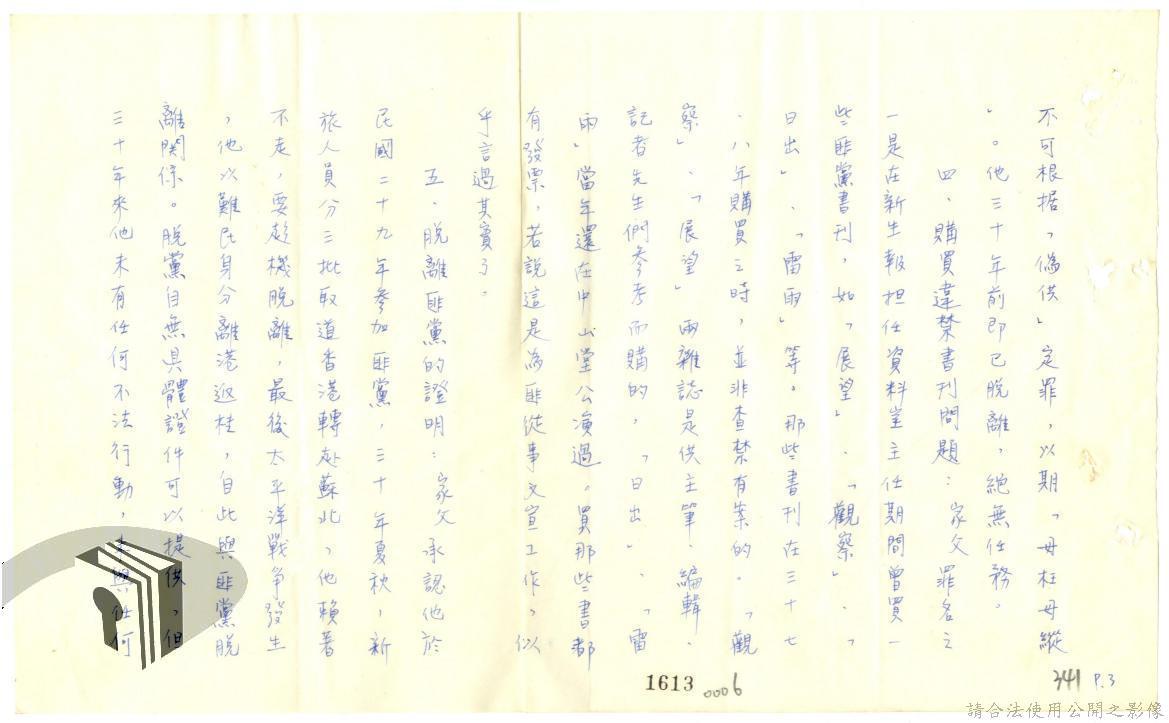 不可根据「偽供」定罪，以期「毋枉毋縱
」。他三十年前即已脫離，絕無任務。
四、購買違禁書刊問題：家父罪名之
一是在新生報担任資料室主任期間曾買一
些匪黨書刊，如「展望」、「觀察」、「
日出」、「雷雨」等。那些書刊在三十七
、八年購買之時，並非查禁有案的。「觀
察」、「展望」兩雜誌是供主筆、編輯、
記者先生們參考而購的，「日出」、「雷
雨」當年還在中山堂公演過。買那些書都
有發票，若說這是為匪從事文宣工作，似
乎言過其實了。
五、脫離匪黨的證明：家父承認他於
民國二十九年參加匪黨，三十年夏秋，新
旅人員分三批取道香港轉赴蘇北，他賴著
不走，要趁機脫離，最後太平洋戰爭發生
，他以難民身分離港返桂，自此與匪黨脫
離關係。脫黨自無具體證件可以提供，但
三十年來他未有任何不法行動，未與任何
1613
0006
341 P.3
請合法使用公開之影像